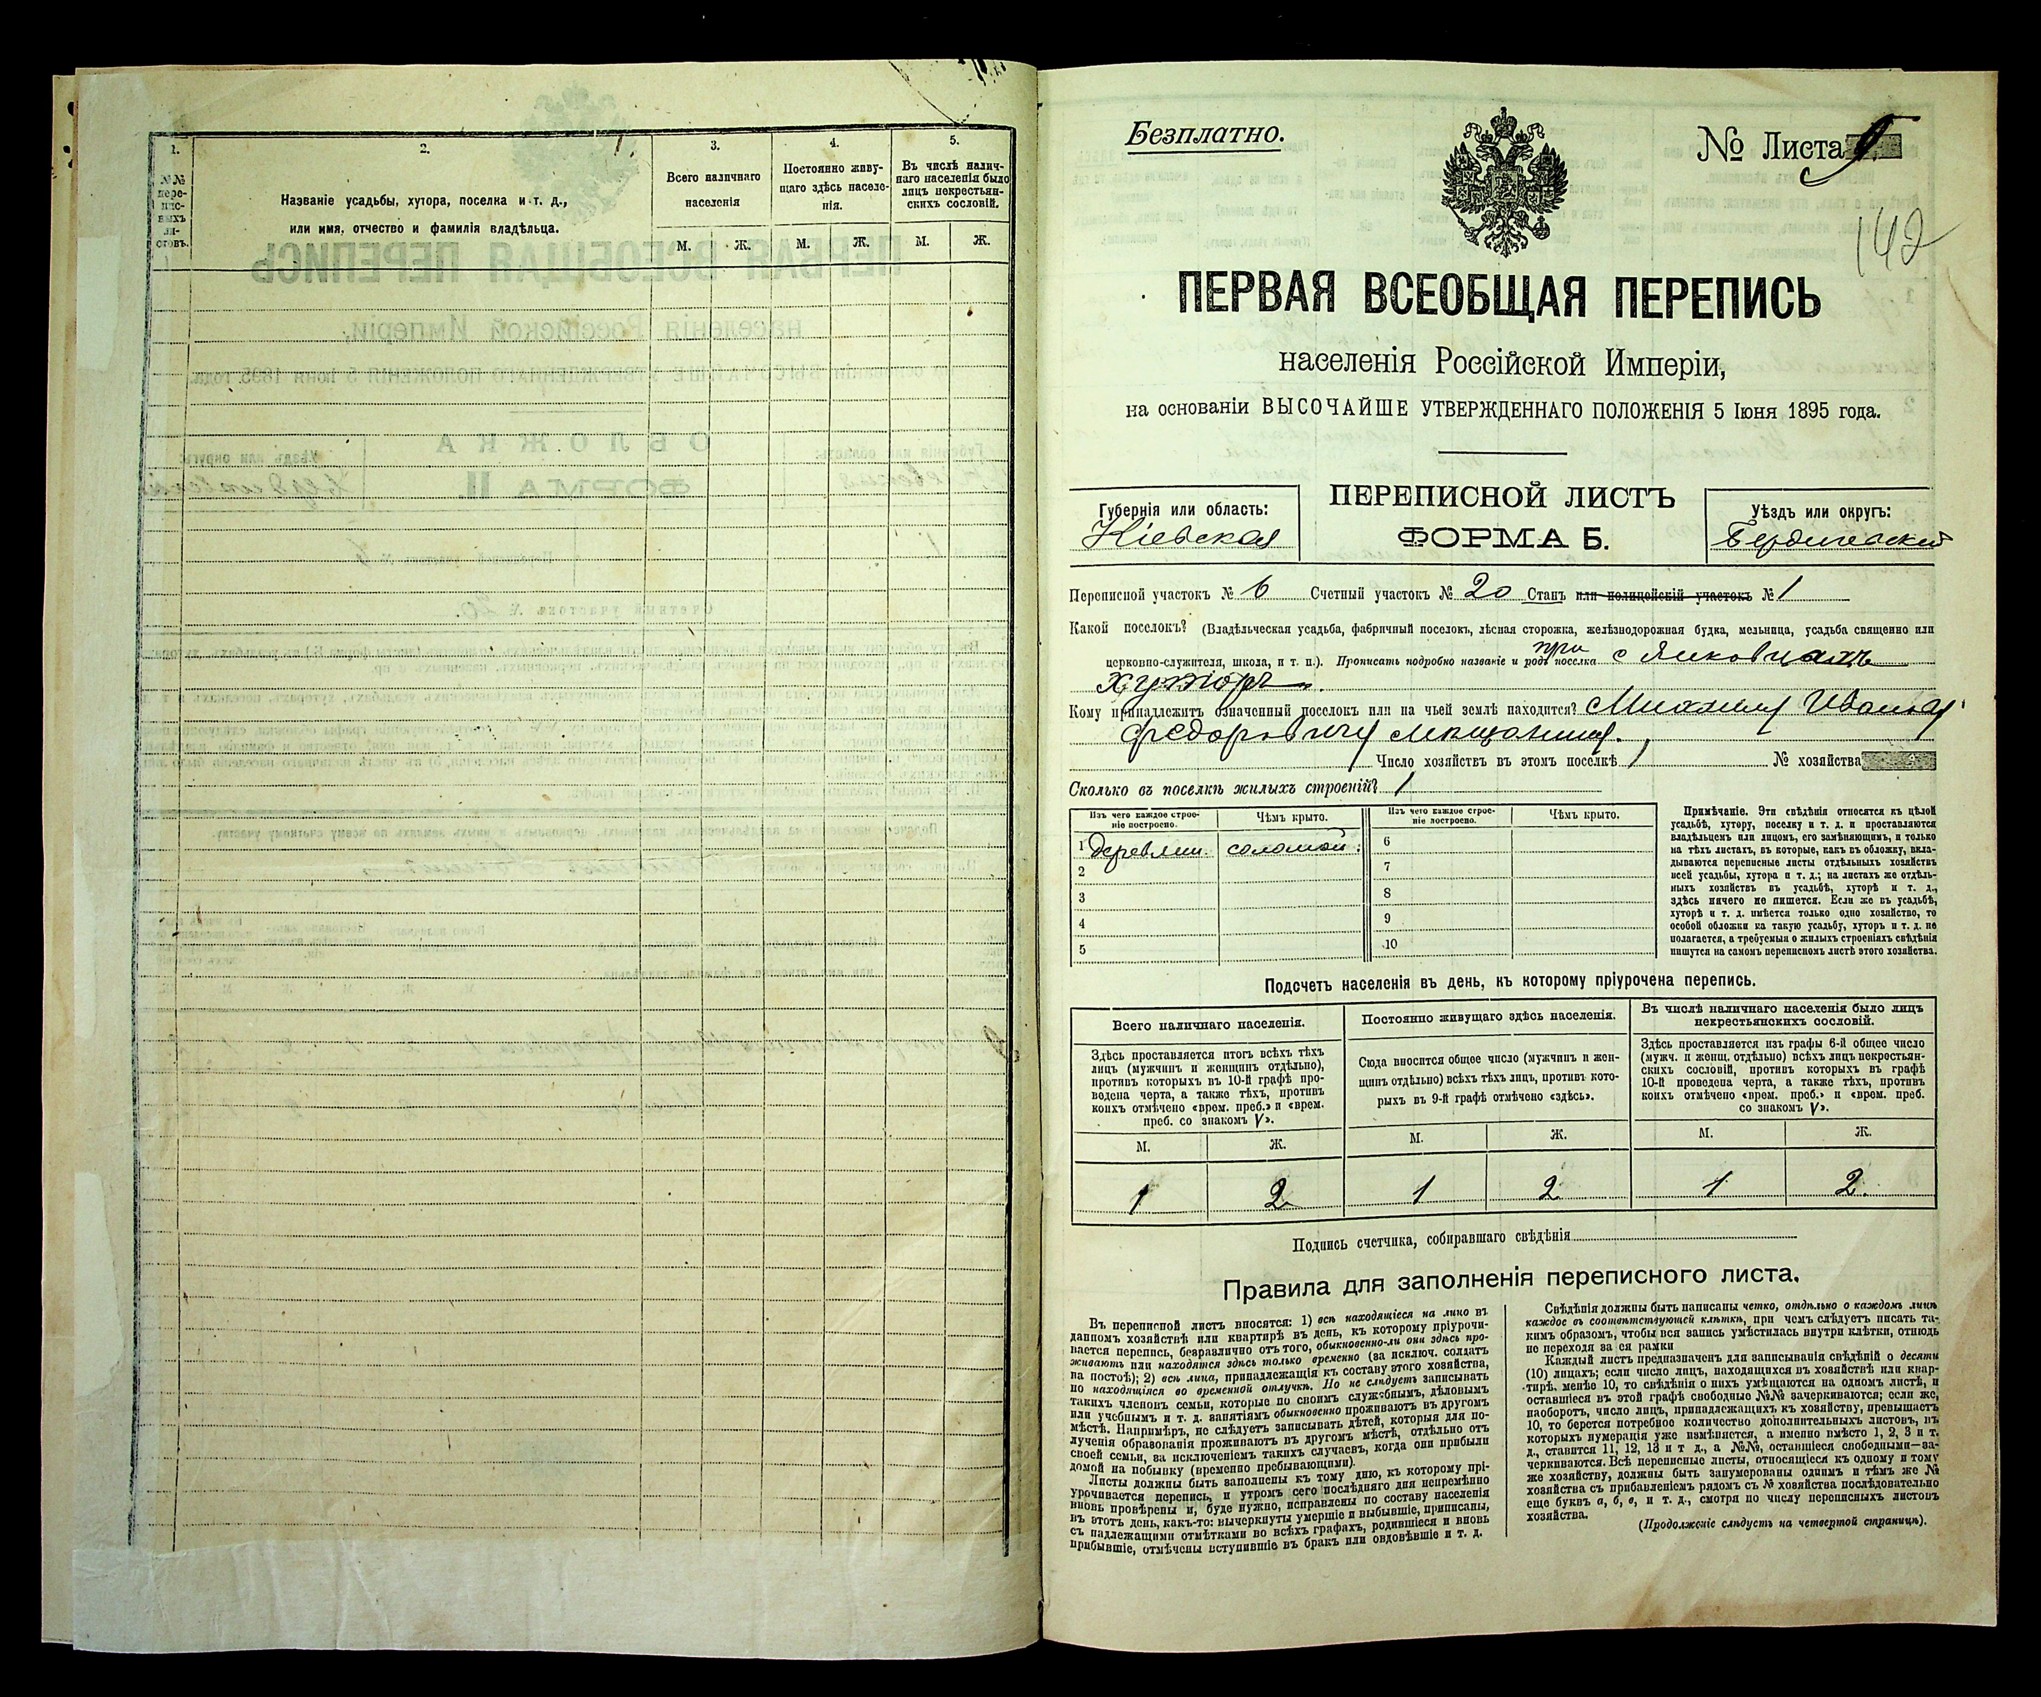 1.
2.
3.
4.
5.
№№ пере-пис-ныхъ ли-стовъ.
Названіе усадьбы, хутора, поселка и т. д.,
или имя, отчество и фамилія владѣльца.
Всего наличнаго
населенія
Постоянно живу-
щаго здѣсь населе-
нія.
Въ числѣ налич-
наго населенія было
лицъ некрестьян-
скихъ сословій.
М. Ж. М. Ж. М. Ж.
Безплатно.
№ Листа
142
ПЕРВАЯ ВСЕОБЩАЯ ПЕРЕПИСЬ
населенія Россійской Имперіи,
на основаніи ВЫСОЧАЙШЕ УТВЕРЖДЕННАГО ПОЛОЖЕНІЯ 5 Іюня 1895 года.
Губернія или область:
Кіевская
ПЕРЕПИСНОЙ ЛИСТЪ
ФОРМА Б.
Уѣздъ или округъ:
Бердичевскій
Переписной участокъ № 6 Счетный участокъ № 20 Станъ или полицейскій участокъ № 1
Какой поселокъ? (Владѣльческая усадьба, фабричный поселокъ, лѣсная сторожка, желѣзнодорожная будка, мельница, усадьба священно или
церковно-служителя, школа, и т. п.). Прописать подробно названіе и родъ поселка при с Янковцахъ
хуторъ.
Кому принадлежитъ означенный поселокъ или на чьей землѣ находится? Михаилу Иванову
Федоровичу мѣщанину.
Число хозяйствъ въ этомъ поселкѣ 1 № хозяйства
Сколько въ поселкѣ жилыхъ строеній? 1
Изъ чего каждое строе-
ніе построено.
Чѣмъ крыто.
Изъ чего каждое строе-
ніе построено.
Чѣмъ крыто.
1 деревян. соломой.
2
3
4
5
6
7
8
9
10
Примѣчаніе. Эти свѣдѣнія относятся къ цѣлой
усадьбѣ, хутору, поселку и т. д. и проставляются
владѣльцемъ или лицомъ, его замѣняющимъ, и только
на тѣхъ листахъ, въ которые, какъ въ обложку, вкла-
дываются переписные листы отдѣльныхъ хозяйствъ
всей усадьбы, хутора и т. д.; на листахъ же отдѣль-
ныхъ хозяйствъ въ усадьбѣ, хуторѣ и т. д.,
здѣсь ничего не пишется. Если же въ усадьбѣ,
хуторѣ и т. д. имѣется только одно хозяйство, то
особой обложки на такую усадьбу, хуторъ и т. д. не
полагается, а требуемыя о жилыхъ строеніяхъ свѣдѣнія
пишутся на самомъ переписномъ листѣ этого хозяйства.
Подсчетъ населенія въ день, къ которому пріурочена перепись.
Всего наличнаго населенія.
Здѣсь проставляется итогъ всѣхъ тѣхъ
лицъ (мужчинъ и женщинъ отдѣльно),
противъ которыхъ въ 10-й графѣ про-
ведена черта, а также тѣхъ, противъ
коихъ отмѣчено «врем. преб.» и «врем.
преб. со знакомъ V».
Постоянно живущаго здѣсь населенія.
Сюда вносится общее число (мужчинъ и жен-
щинъ отдѣльно) всѣхъ тѣхъ лицъ, противъ кото-
рыхъ въ 9-й графѣ отмѣчено «здѣсь».
Въ числѣ наличнаго населенія было лицъ
некрестьянскихъ сословій.
Здѣсь проставляется изъ графы 6-й общее число
(мужч. и женщ. отдѣльно) всѣхъ лицъ некрестьян-
скихъ сословій, противъ которыхъ въ графѣ
10-й проведена черта, а также тѣхъ, противъ
коихъ отмѣчено «врем. преб.» и «врем. преб.
со знакомъ V».
М. Ж. М. Ж. М. Ж.
1 2 1 2 1 2.
Подпись счетчика, собиравшаго свѣдѣнія
Правила для заполненія переписного листа.
Въ переписной листъ вносятся: 1) всѣ находящіеся на лицо въ
данномъ хозяйствѣ или квартирѣ въ день, къ которому пріурочи-
вается перепись, безразлично отъ того, обыкновенно-ли они здѣсь про-
живаютъ или находятся здѣсь только временно (за исключ. солдатъ
на постоѣ); 2) всѣ лица, принадлежащія къ составу этого хозяйства,
но находящіяся во временной отлучкѣ. Но не слѣдуетъ записывать
такихъ членовъ семьи, которые по своимъ служебнымъ, дѣловымъ
или учебнымъ и т. д. занятіямъ обыкновенно проживаютъ въ другомъ
мѣстѣ. Напримѣръ, не слѣдуетъ записывать дѣтей, которыя для по-
лученія образованія проживаютъ въ другомъ мѣстѣ, отдѣльно отъ
своей семьи, за исключеніемъ такихъ случаевъ, когда они прибыли
домой на побывку (временно пребывающими).
Листы должны быть заполнены къ тому дню, къ которому прі-
урочивается перепись, и утромъ сего послѣдняго дня непремѣнно
вновь провѣрены и, буде нужно, исправлены по составу населенія
въ этотъ день, какъ-то: вычеркнуты умершіе и выбывшіе, приписаны,
съ надлежащими отмѣтками во всѣхъ графахъ, родившіеся и вновь
прибывшіе, отмѣчены вступившіе въ бракъ или овдовѣвшіе и т. д.
Свѣдѣнія должны быть написаны четко, отдѣльно о каждомъ лицѣ
каждое въ соотвѣтствующей клѣткѣ, при чемъ слѣдуетъ писать та-
кимъ образомъ, чтобы вся запись умѣстилась внутри клѣтки, отнюдь
не переходя за ея рамки
Каждый листъ предназначенъ для записыванія свѣдѣній о десяти
(10) лицахъ; если число лицъ, находящихся въ хозяйствѣ или квар-
тирѣ, менѣе 10, то свѣдѣнія о нихъ умѣщаются на одномъ листѣ, и
оставшіеся въ этой графѣ свободные №№ зачеркиваются; если же,
наоборотъ, число лицъ, принадлежащихъ къ хозяйству, превышаетъ
10, то берется потребное количество дополнительныхъ листовъ, въ
которыхъ нумерація уже измѣняется, а именно вмѣсто 1, 2, 3 и т.
д., ставится 11, 12, 13 и т д., а №№, оставшіеся свободными—за-
черкиваются. Всѣ переписные листы, относящіеся къ одному и тому
же хозяйству, должны быть занумерованы однимъ и тѣмъ же №
хозяйства съ прибавленіемъ рядомъ съ № хозяйства послѣдовательно
еще буквъ а, б, в, и т. д., смотря по числу переписныхъ листовъ
хозяйства.
(Продолженіе слѣдуетъ на четвертой страницѣ).